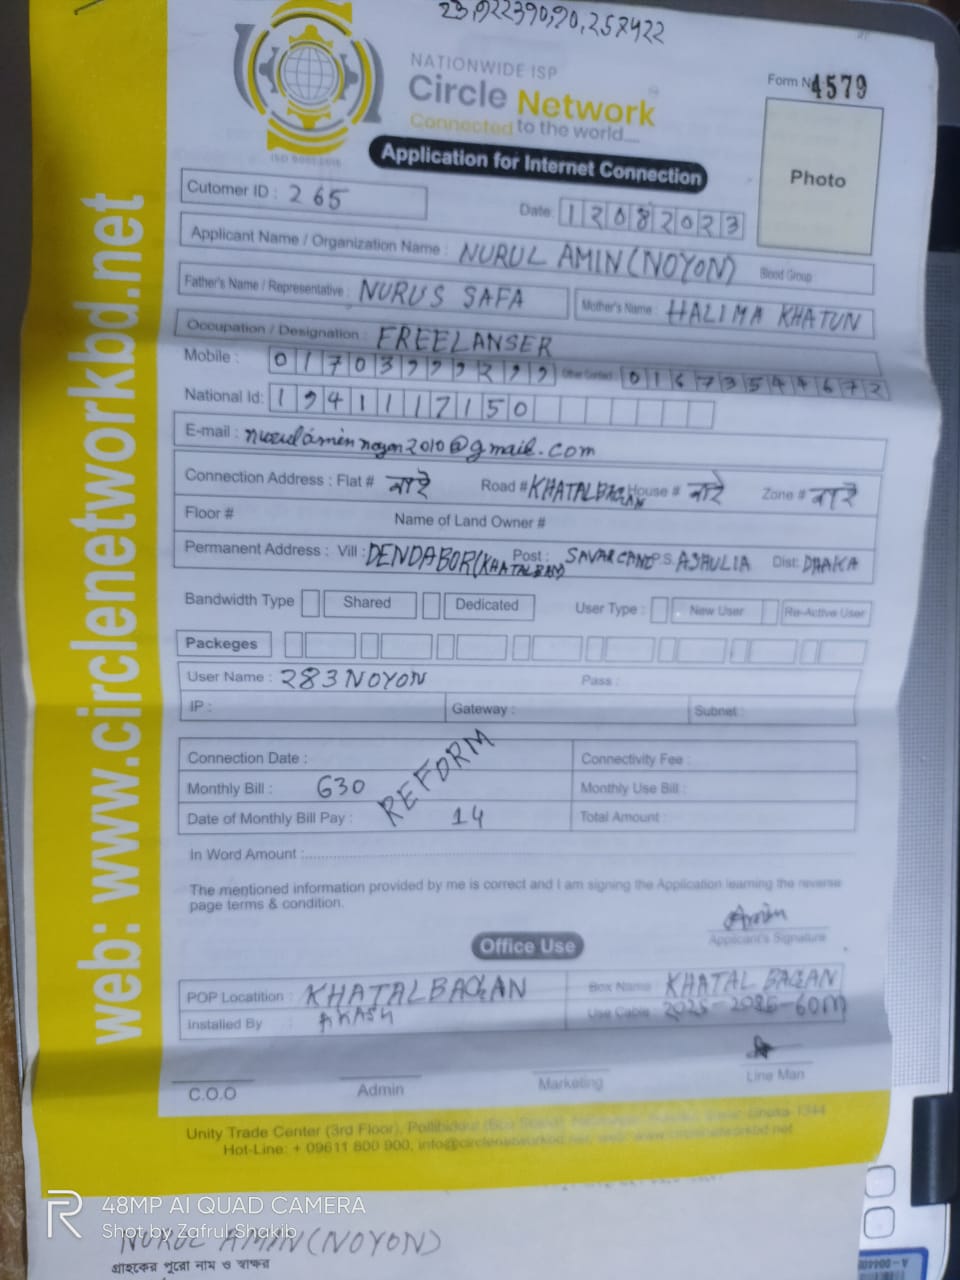 23.922390,90.257422
NATIONWIDE ISP
Circle Network
Connected to the world....
ISO 9001:2015
Form No 4579
Application for Internet Connection
Photo
Cutomer ID : 265
Date: 12082023
Applicant Name / Organization Name : NURUL AMIN (NOYON) Blood Group
Father's Name / Representative : NURUS SAFA Mother's Name : HALIMA KHATUN
Occupation / Designation : FREELANSER
Mobile : 01703999299 Other Contact : 01673544672
National Id: 1941117150
E-mail : nurulaminnoyon2010@gmail.com
Connection Address : Flat # নাই Road # KHATALBAGAN House # নাই Zone # নাই
Floor # Name of Land Owner #
Permanent Address : Vill : DENDABOR (KHATALBAN) Post : SAVAR CANT P.S. ASHULIA Dist: DHAKA
Bandwidth Type Shared Dedicated User Type : New User Re-Active User
Packeges
User Name : 283NOYON Pass :
IP : Gateway : Subnet :
Connection Date : Connectivity Fee :
Monthly Bill : 630 Monthly Use Bill :
REFORM
Date of Monthly Bill Pay : 14 Total Amount :
In Word Amount :
The mentioned information provided by me is correct and I am signing the Application learning the reverse
page terms & condition.
Amin
Applicant's Signature
Office Use
POP Locatition : KHATALBAGAN Box Name KHATAL BAGAN
Installed By AKASH Use Cable 60M
C.O.O Admin Marketing Line Man
Unity Trade Center (3rd Floor),
Hot-Line: + 09611 800 900, info@circlenetworkbd.net, web: www.circlenetworkbd.net
web: www.circlenetworkbd.net
48MP AI QUAD CAMERA
Shot by Zafrul Shakib
NURUL AMIN (NOYON)
গ্রাহকের পুরো নাম ও স্বাক্ষর